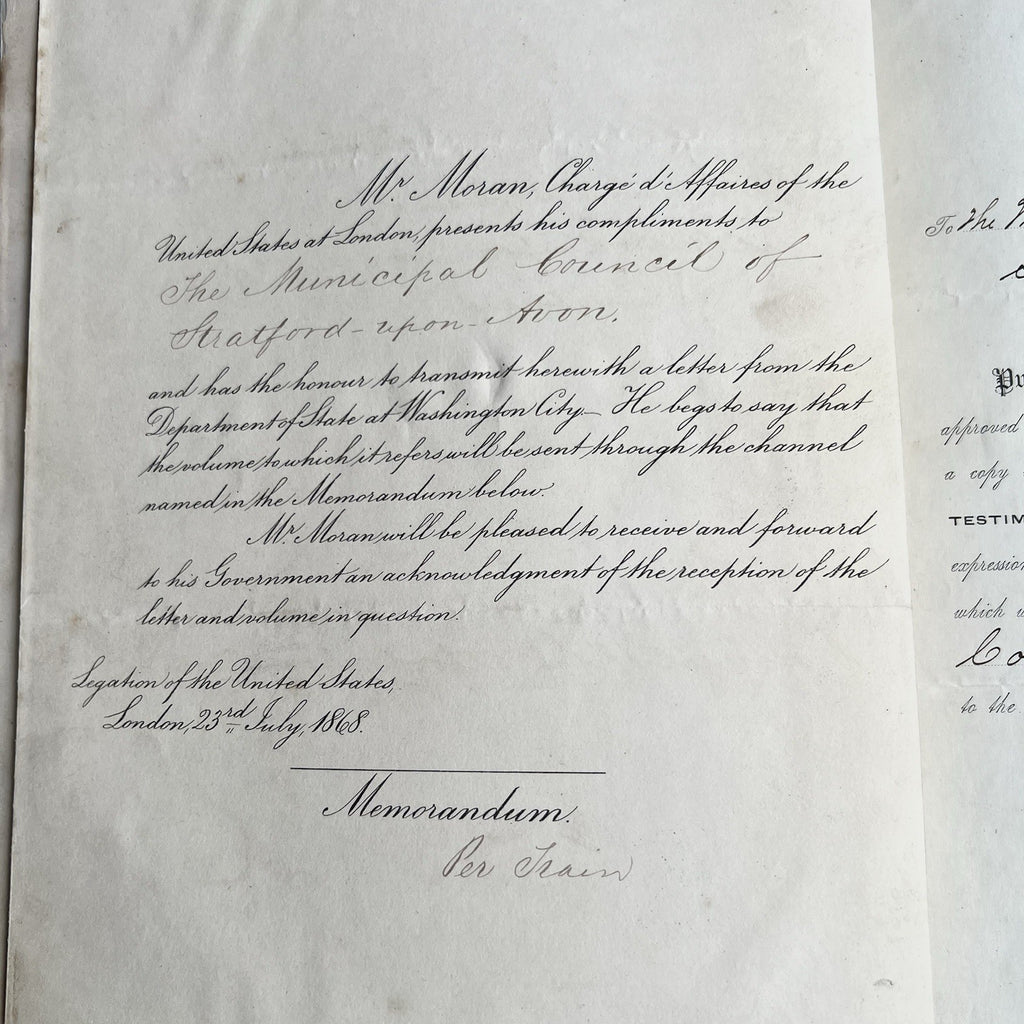 Mr. Moran, Chargé d'Affaires of the
United States at London, presents his compliments to
The Municipal Council of
Stratford-upon-Avon.
and has the honour to transmit herewith a letter from the
Department of State at Washington City_ He begs to say that
the volume to which it refers will be sent through the channel
named in the Memorandum below.
Mr. Moran will be pleased to receive and forward
to his Government an acknowledgment of the reception of the
letter and volume in question.
Legation of the United States,
London, 23rd July, 1868.
Memorandum.
Per Train
To The
approved
a copy
TESTIM
expression
which
Co
to the